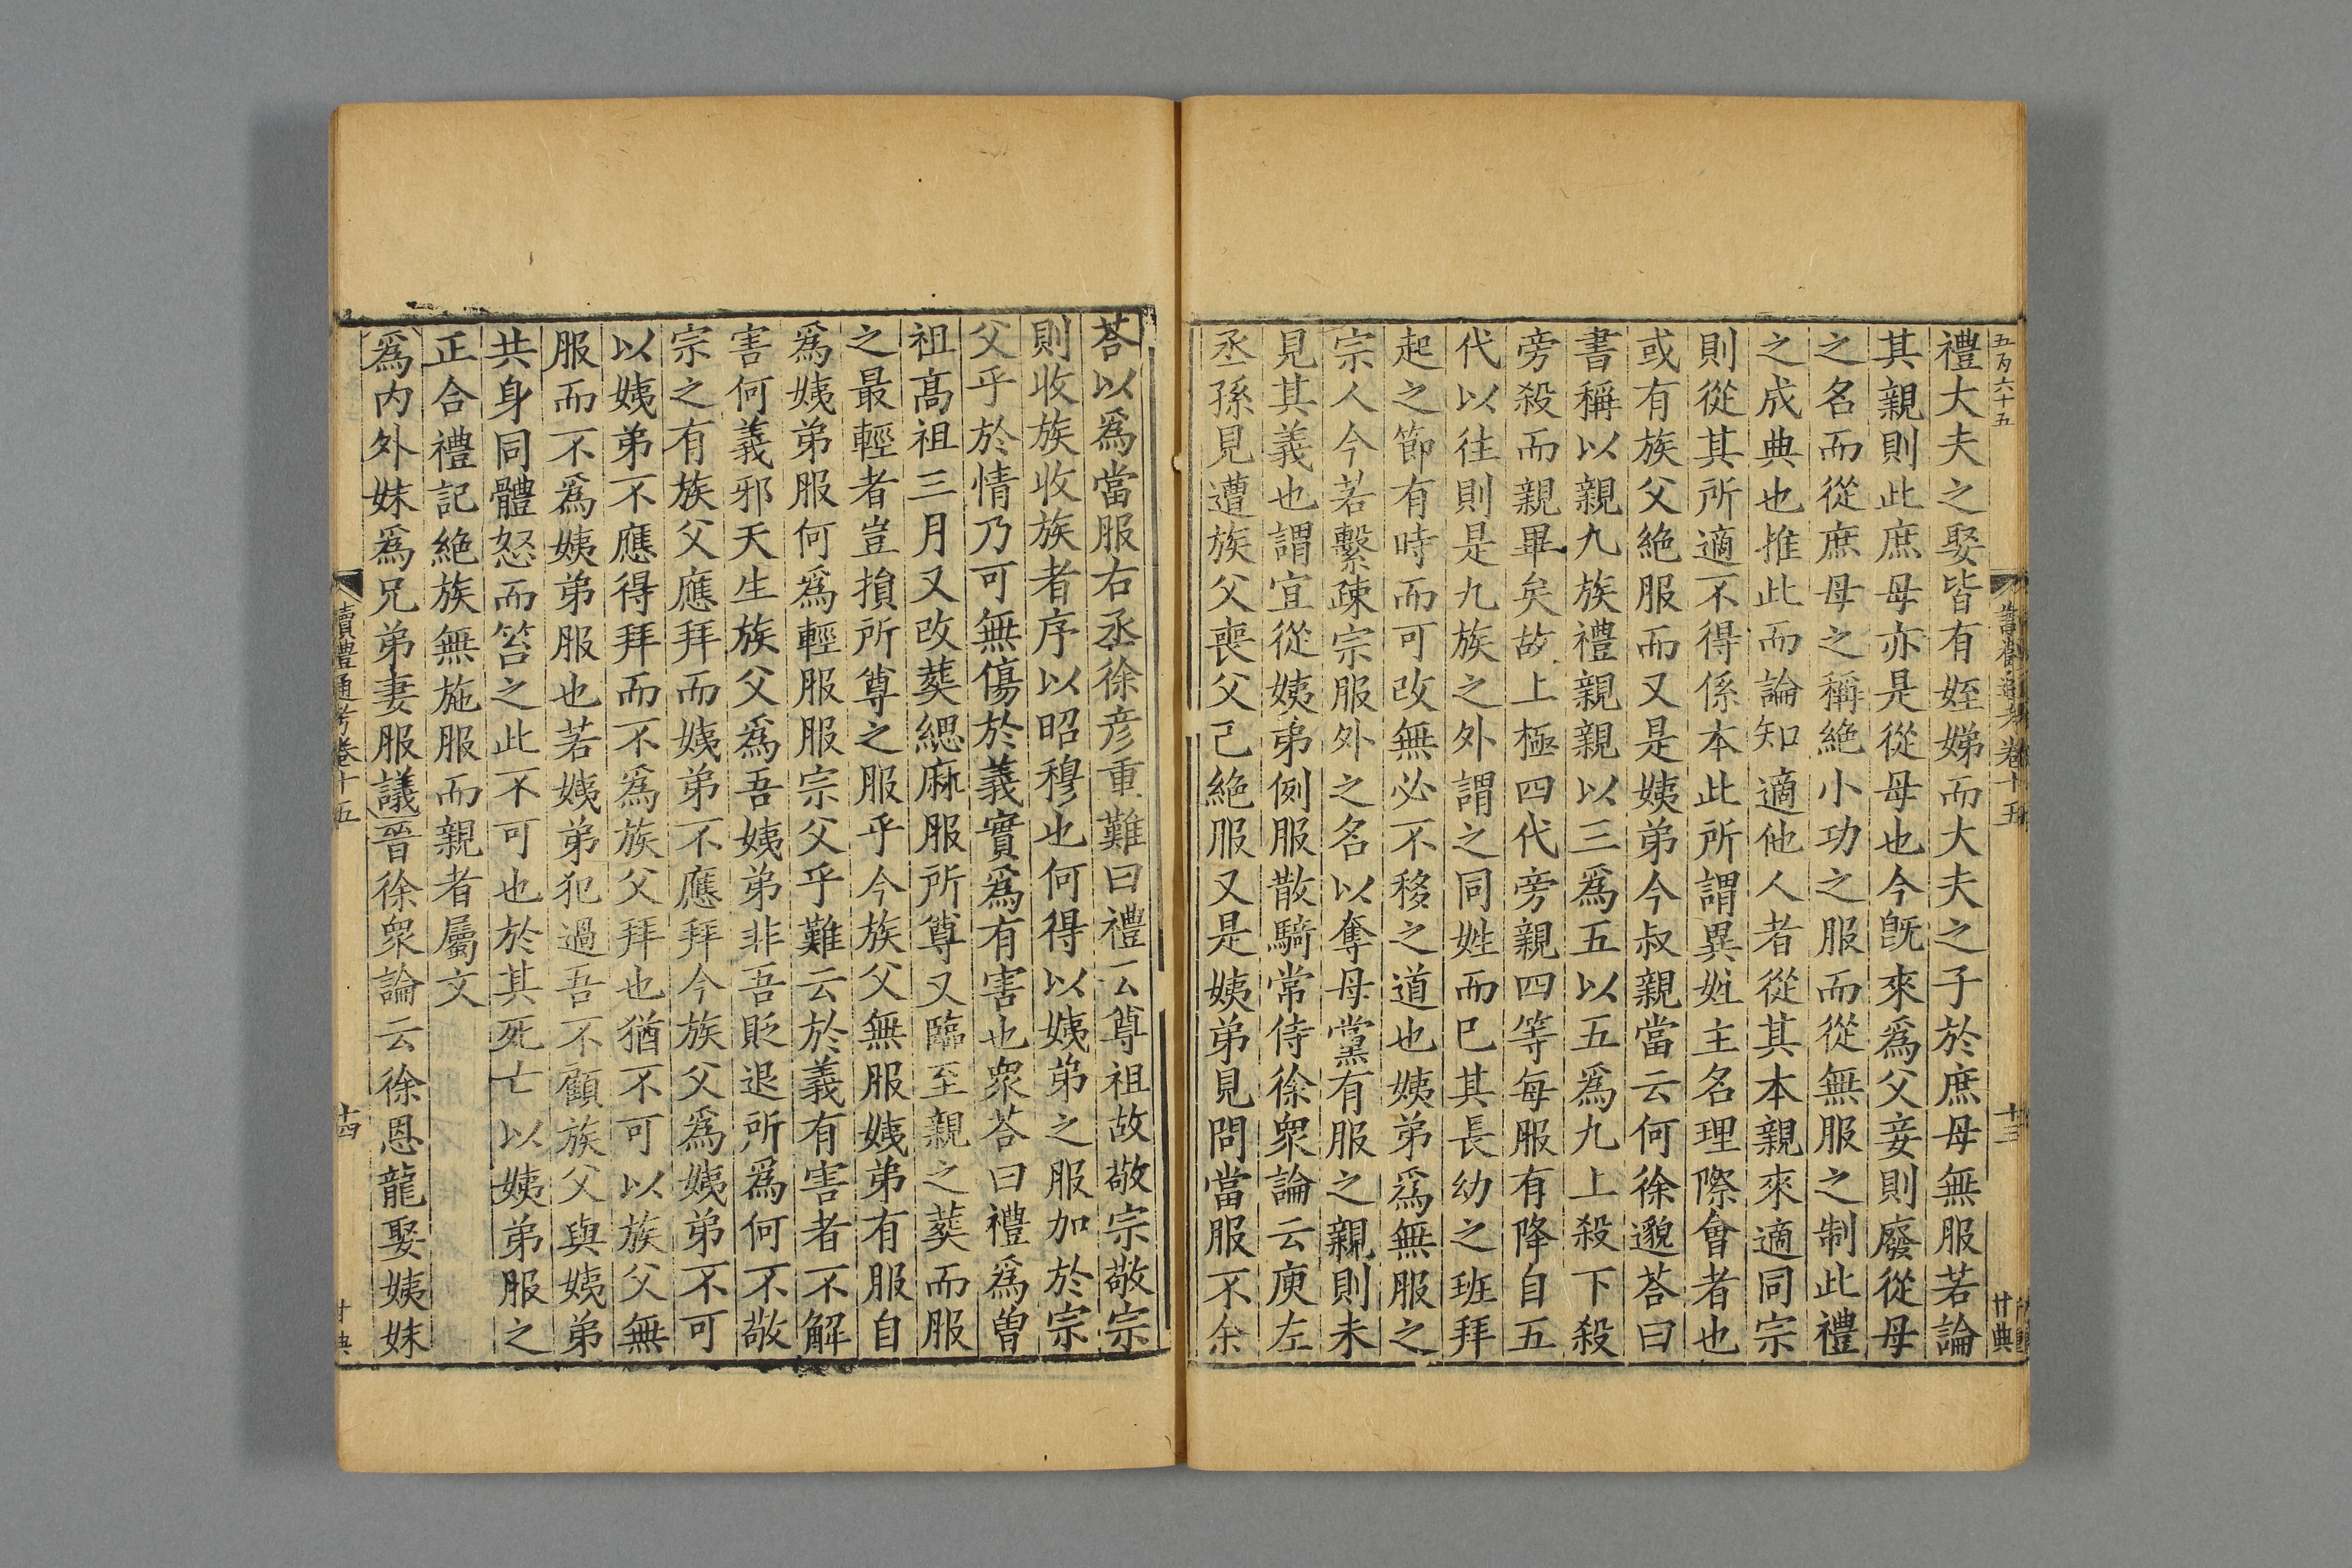 五百六十五
讀禮通考卷十五
十三
甘典
禮大夫之娶皆有姪娣而大夫之子於庶母無服若論
其親則此庶母亦是從母也今旣來爲父妾則廢從母
之名而從庶母之稱絶小功之服而從無服之制此禮
之成典也推此而論知適他人者從其本親來適同宗
則從其所適不得係本此所謂異姓主名理際會者也
或有族父絶服而又是姨弟今叔親當云何徐邈荅曰
書稱以親九族禮親親以三爲五以五爲九上殺下殺
旁殺而親畢矣故上極四代旁親四等每服有降自五
代以往則是九族之外謂之同姓而已其長幼之班拜
起之節有時而可改無必不移之道也姨弟爲無服之
宗人今若繫疎宗服外之名以奪母黨有服之親則未
見其義也謂宜從姨弟例服散騎常侍徐衆論云庾左
丞孫見遭族父喪父己絶服又是姨弟見問當服不余
荅以爲當服右丞徐彦重難曰禮云尊祖故敬宗敬宗
則收族收族者序以昭穆也何得以姨弟之服加於宗
父乎於情乃可無傷於義實爲有害也衆荅曰禮爲曾
祖高祖三月又改葬緦麻服所尊又臨至親之葬而服
之最輕者豈損所尊之服乎今族父無服姨弟有服自
爲姨弟服何爲輕服服宗父乎難云於義有害者不解
害何義邪天生族父爲吾姨弟非吾貶退所爲何不敬
宗之有族父應拜而姨弟不應拜今族父爲姨弟不可
以姨弟不應得拜而不爲族父拜也猶不可以族父無
服而不爲姨弟服也若姨弟犯過吾不顧族父與姨弟
共身同體怒而笞之此不可也於其死亡以姨弟服之
正合禮記絶族無施服而親者屬文
爲内外妹爲兄弟妻服議晉徐衆論云徐恩龍娶姨妹
讀禮通考卷十五
十四
甘典